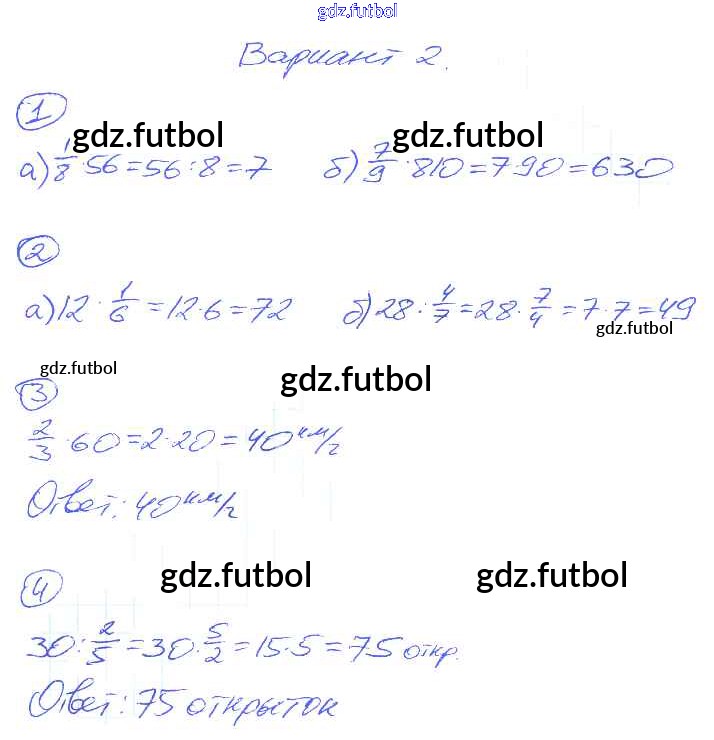 gdz.futbol
Вариант 2.
1
gdz.futbol gdz.futbol
а) 1/8 · 56 = 56 : 8 = 7 б) 7/9 · 810 = 7·90 = 630
2
а) 12 : 1/6 = 12·6 = 72 б) 28 : 4/7 = 28 · 7/4 = 7·7 = 49
gdz.futbol
gdz.futbol gdz.futbol
3
2/3 · 60 = 2·20 = 40 км/ч
Ответ: 40 км/ч
gdz.futbol gdz.futbol
4
30 : 2/5 = 30 · 5/2 = 15·5 = 75 откр.
Ответ: 75 открыток